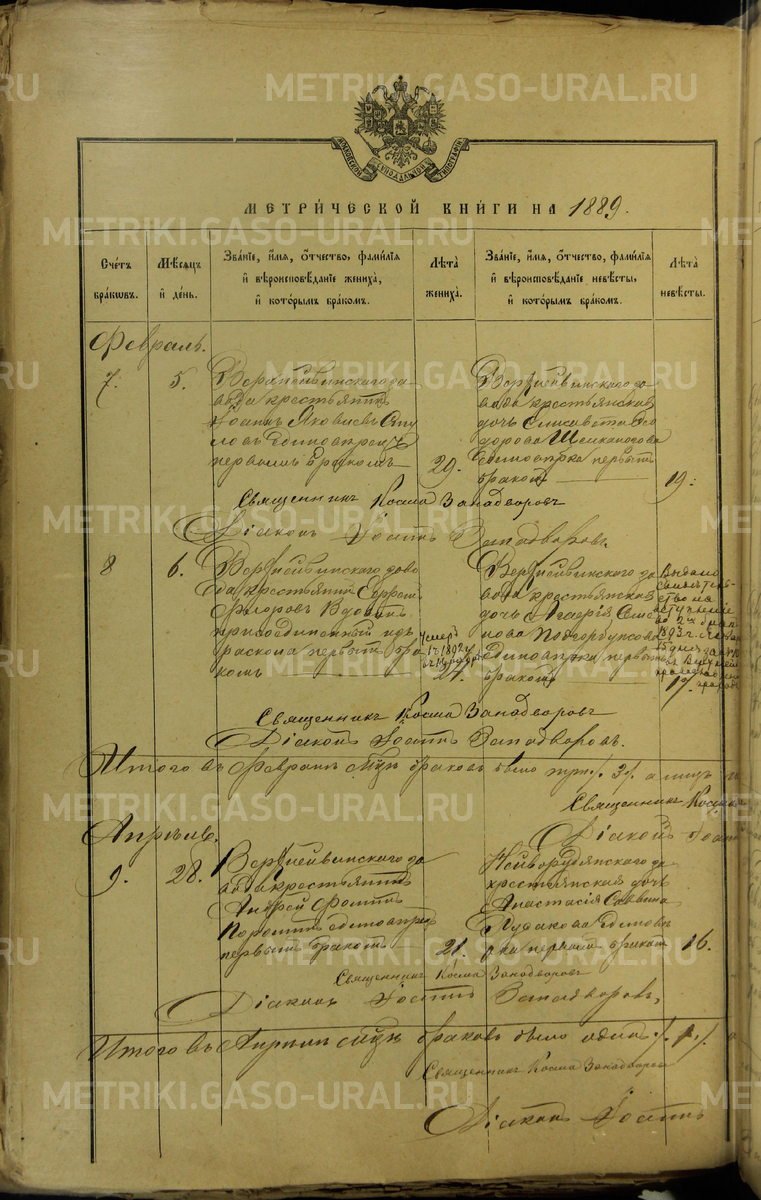 METRIKI.GASO-URAL.RU
МОСКОВСКОЙ СѴНОДАЛЬНОЙ ТИПОГРАФІИ
МЕТРИ́ЧЕСКОЙ КНИ́ГИ НА 1889.
Сче́тъ бра́ковъ.
Мѣ́сяцъ и де́нь.
Зва́ніе, и́мя, о́тчество, фами́лія и вѣроисповѣ́даніе жениха̀, и кото́рымъ бра́комъ.
Лѣта̀ жениха̀.
Зва́ніе, и́мя, о́тчество, фами́лія и вѣроисповѣ́даніе невѣ́сты, и кото́рымъ бра́комъ.
Лѣта̀ невѣ́сты.
Февраль.
7. 5.
Верхнейвинскаго за
вода крестьянинъ
Іоаннъ Яковлевъ
единоверецъ
первымъ бракомъ
29.
Верхнейвинскаго за
вода крестьянская
дочь Елисавета Ѳео
дорова
единоверка первымъ
бракомъ
19.
Священникъ Косма Западворовъ
Діаконъ Іоаннъ Западворовъ.
8 6.
Верхнейвинскаго заво
да крестьянинъ Ефремъ
Ѳедоровъ Вдовинъ
присоединенный изъ
раскола первымъ бра
комъ
Умеръ
въ 1892 г.
27.
Верхнейвинскаго за
вода крестьянская
дочь
единоверка первымъ
бракомъ
Выдано
свидѣтель-
ство на
вступленіе
во 2й бракъ
1893 г.
19.
Священникъ Косма Западворовъ
Діаконъ Іоаннъ Западворовъ.
Итого въ Февралѣ мцѣ браковъ было три /. 3 /. а лицъ
Священникъ Косма
Діаконъ Іоаннъ
Апрель.
9. 28.
Верхнейвинскаго за
вода крестьянинъ
Андрей Ѳоминъ
единоверецъ
первымъ бракомъ
21.
Нейворудянскаго за
крестьянская дочь
Анастасія Саввина
единовѣ
рка первымъ бракомъ
16.
Священникъ Косма Западворовъ
Діаконъ Іоаннъ Западворовъ.
Итого въ Апрѣлѣ мцѣ браковъ было одинъ /. 1 /.
Священникъ Косма Западворовъ
Діаконъ Іоаннъ